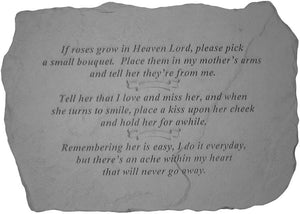 If roses grow in Heaven Lord, please pick
a small bouquet. Place them in my mother's arms
and tell her they're from me.
Tell her that I love and miss her, and when
she turns to smile, place a kiss upon her cheek
and hold her for awhile.
Remembering her is easy, I do it everyday,
but there's an ache within my heart
that will never go away.